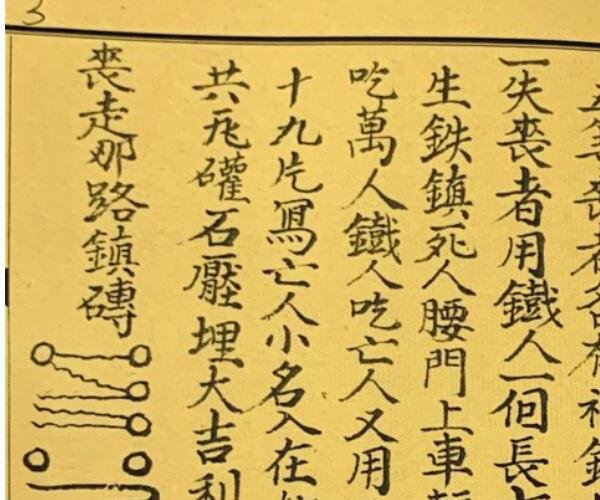 3
喪者
一失喪者用鐵人一個長
生鉄鎮死人腰門上車
吃萬人鐵人吃亡人又用
十九片寫亡人小名入在
共瓦礶石壓埋大吉利
喪走那路鎮磚